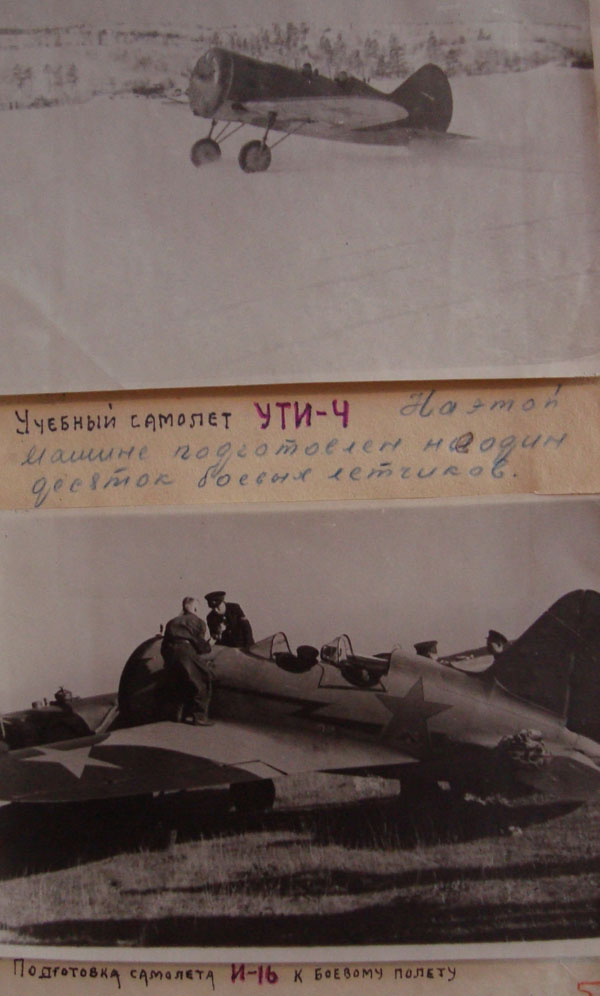 Учебный самолет УТИ-4 На этой
машине подготовлен не один
десяток боевых летчиков.
Подготовка самолета И-16 к боевому полету